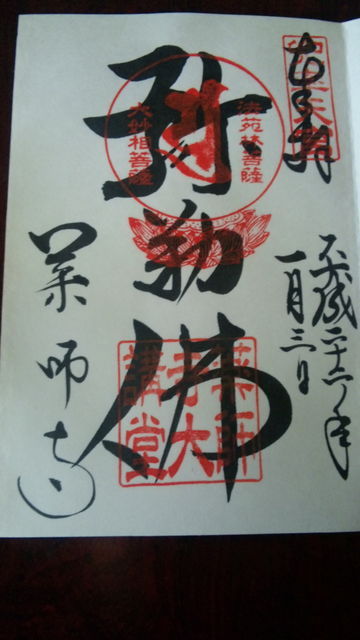 奉拝
平成二十六年
一月三日
弥勒佛
法苑林菩薩
大妙相菩薩
薬師
寺大
講堂
薬師寺